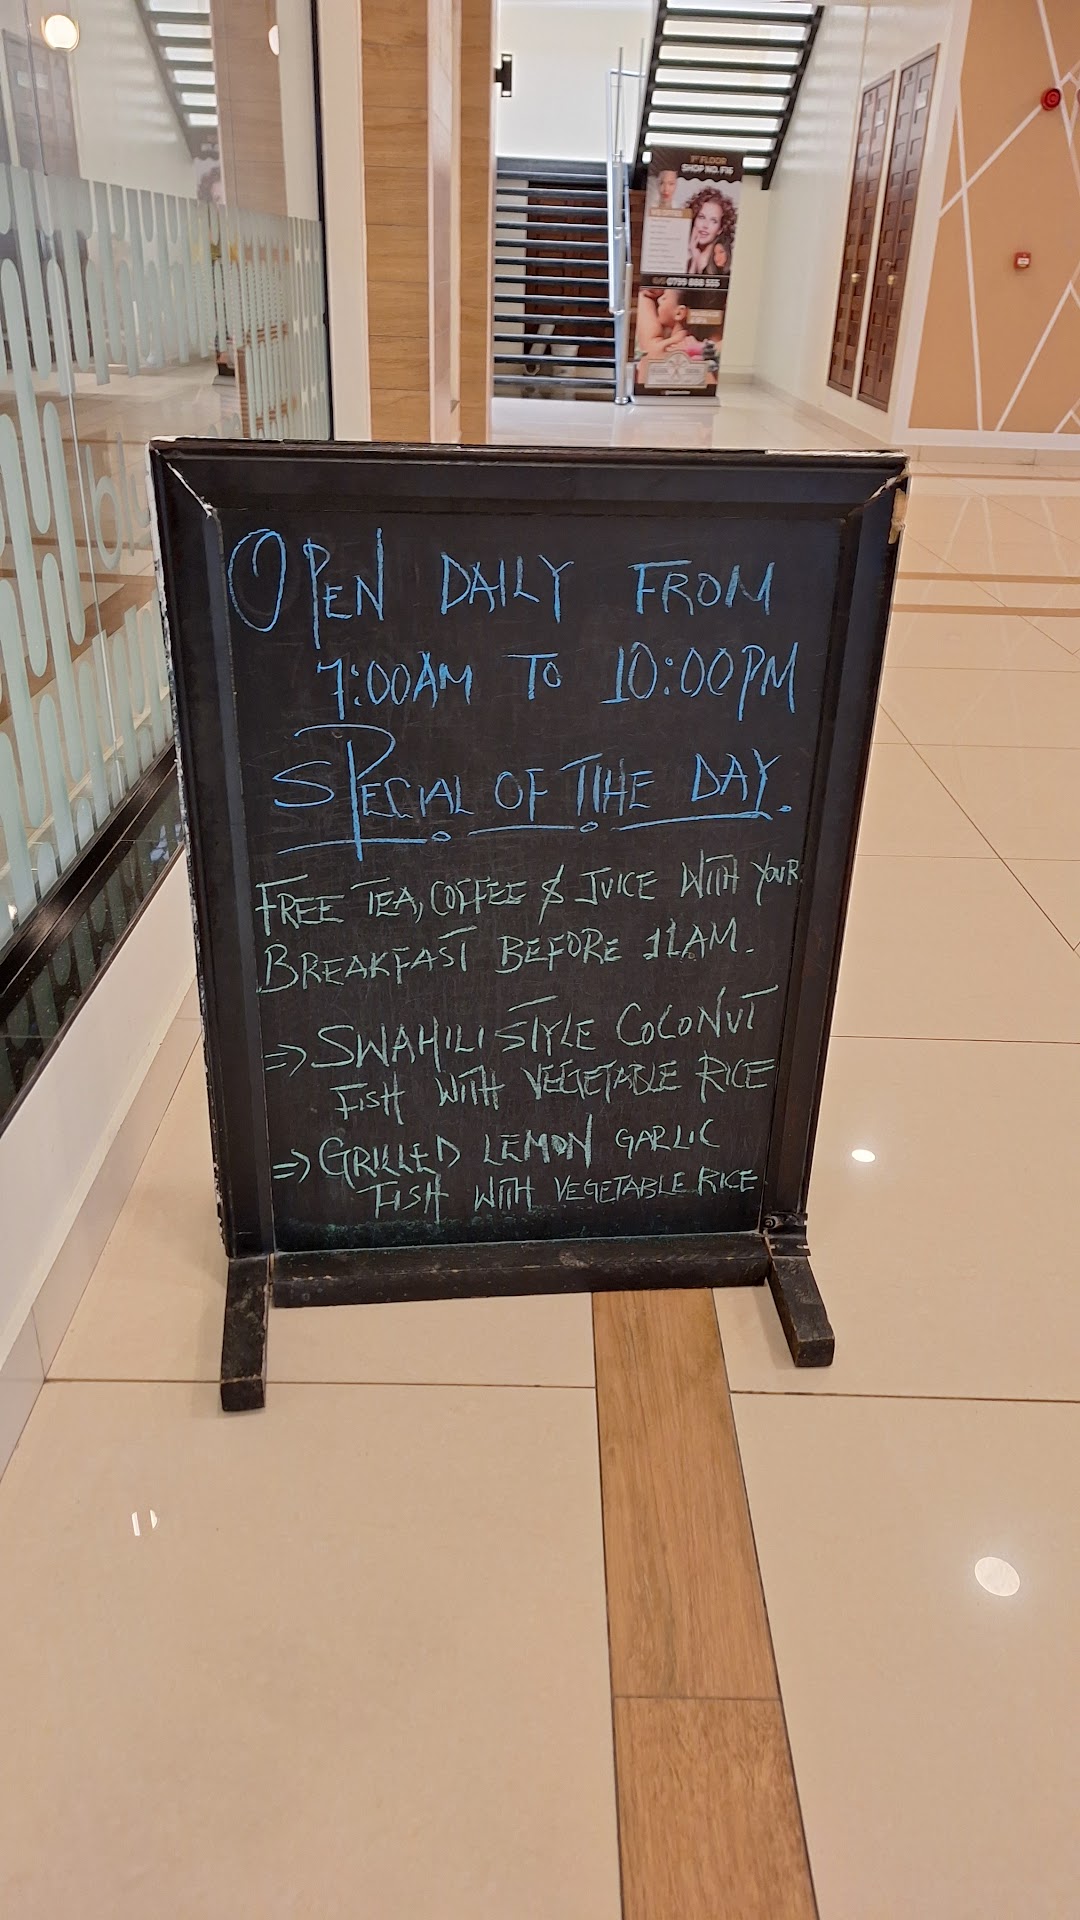 1ST FLOOR
SHOP NO. F16
0799 888 555
OPEN DAILY FROM
7:00AM TO 10:00PM
SPECIAL OF THE DAY.
FREE TEA, COFFEE & JUICE WITH YOUR
BREAKFAST BEFORE 11AM.
=> SWAHILI STYLE COCONUT
FISH WITH VEGETABLE RICE
=> GRILLED LEMON GARLIC
FISH WITH VEGETABLE RICE